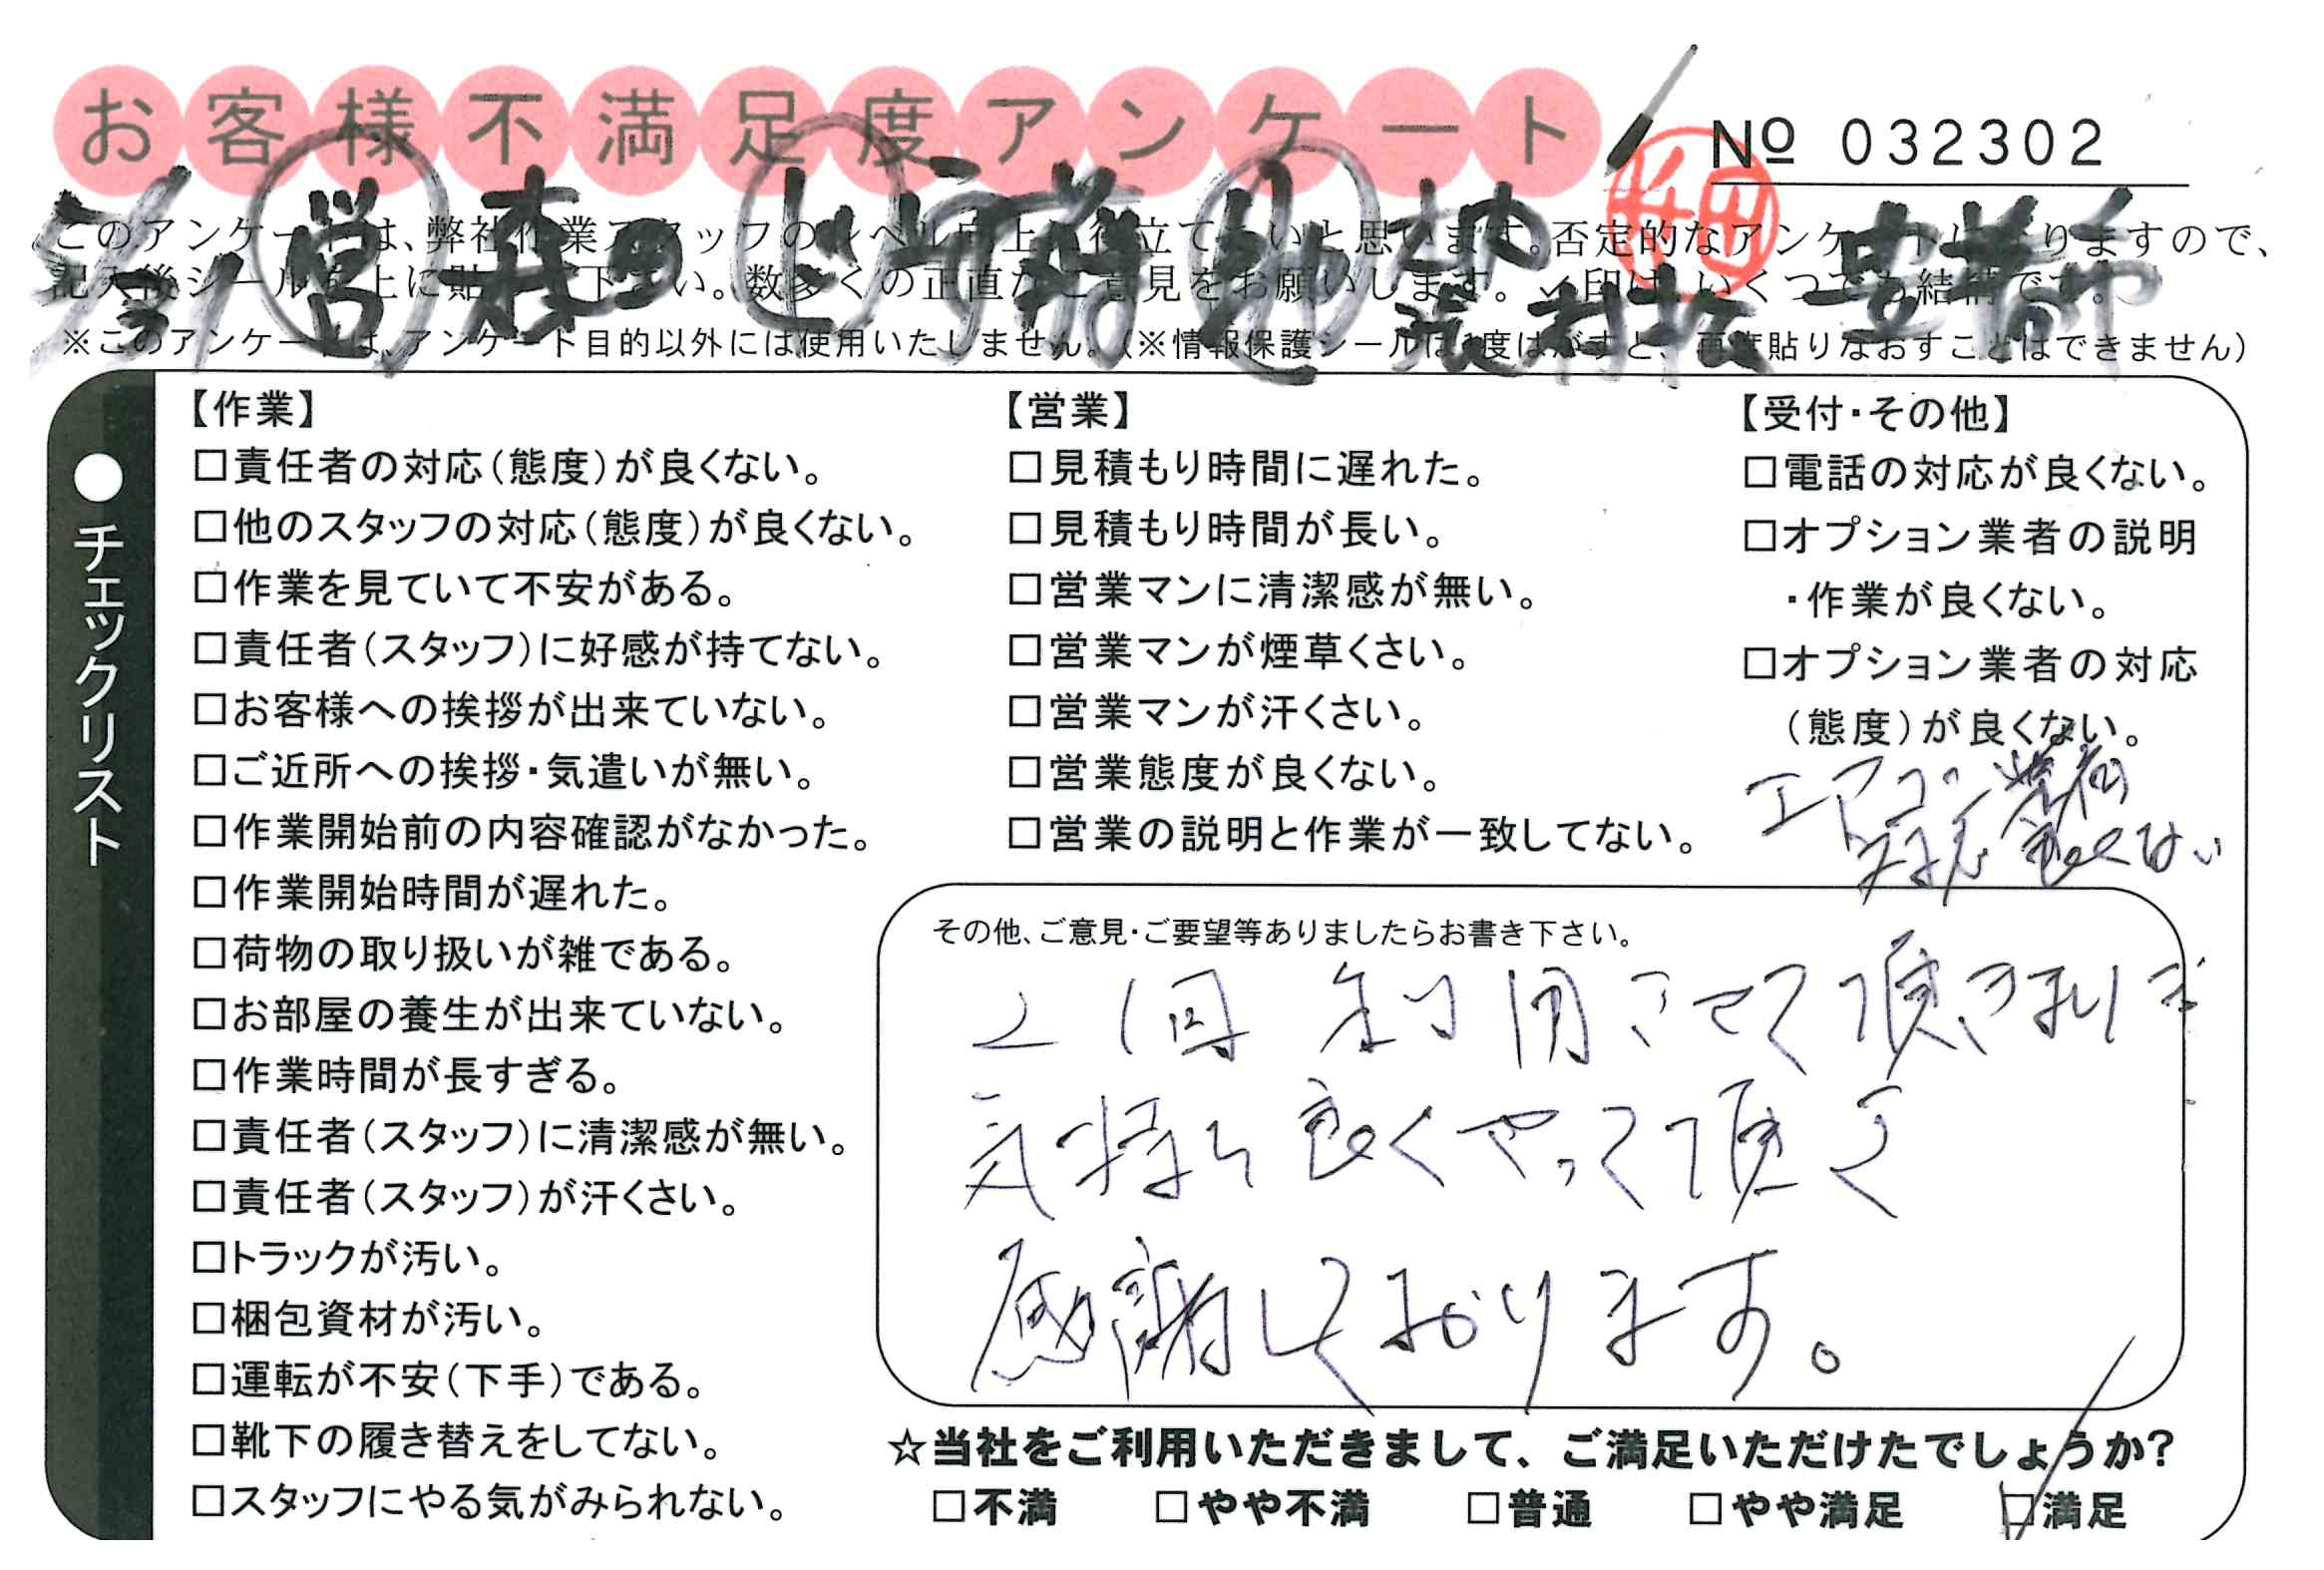 お客様不満足度アンケート
№ 032302
このアンケートは、弊社作業スタッフのレベル向上に役立てたいと思います。否定的なアンケートになりますので、
記入後シールを上に貼って下さい。数多くの正直なご意見をお願いします。✓印は、いくつでも結構です。
※このアンケートは、アンケート目的以外には使用いたしません。（※情報保護シールは1度はがすと、再度貼りなおすことはできません）
営 森田
●チェックリスト
【作業】
□責任者の対応（態度）が良くない。
□他のスタッフの対応（態度）が良くない。
□作業を見ていて不安がある。
□責任者（スタッフ）に好感が持てない。
□お客様への挨拶が出来ていない。
□ご近所への挨拶・気遣いが無い。
□作業開始前の内容確認がなかった。
□作業開始時間が遅れた。
□荷物の取り扱いが雑である。
□お部屋の養生が出来ていない。
□作業時間が長すぎる。
□責任者（スタッフ）に清潔感が無い。
□責任者（スタッフ）が汗くさい。
□トラックが汚い。
□梱包資材が汚い。
□運転が不安（下手）である。
□靴下の履き替えをしてない。
□スタッフにやる気がみられない。
【営業】
□見積もり時間に遅れた。
□見積もり時間が長い。
□営業マンに清潔感が無い。
□営業マンが煙草くさい。
□営業マンが汗くさい。
□営業態度が良くない。
□営業の説明と作業が一致してない。
【受付・その他】
□電話の対応が良くない。
□オプション業者の説明
・作業が良くない。
□オプション業者の対応
（態度）が良くない。
エアコン業者
対応良くない
その他、ご意見・ご要望等ありましたらお書き下さい。
2回利用させて頂きました
気持ち良くやって頂き
感謝しております。
☆当社をご利用いただきまして、ご満足いただけたでしょうか？
□不満 □やや不満 □普通 □やや満足 □満足